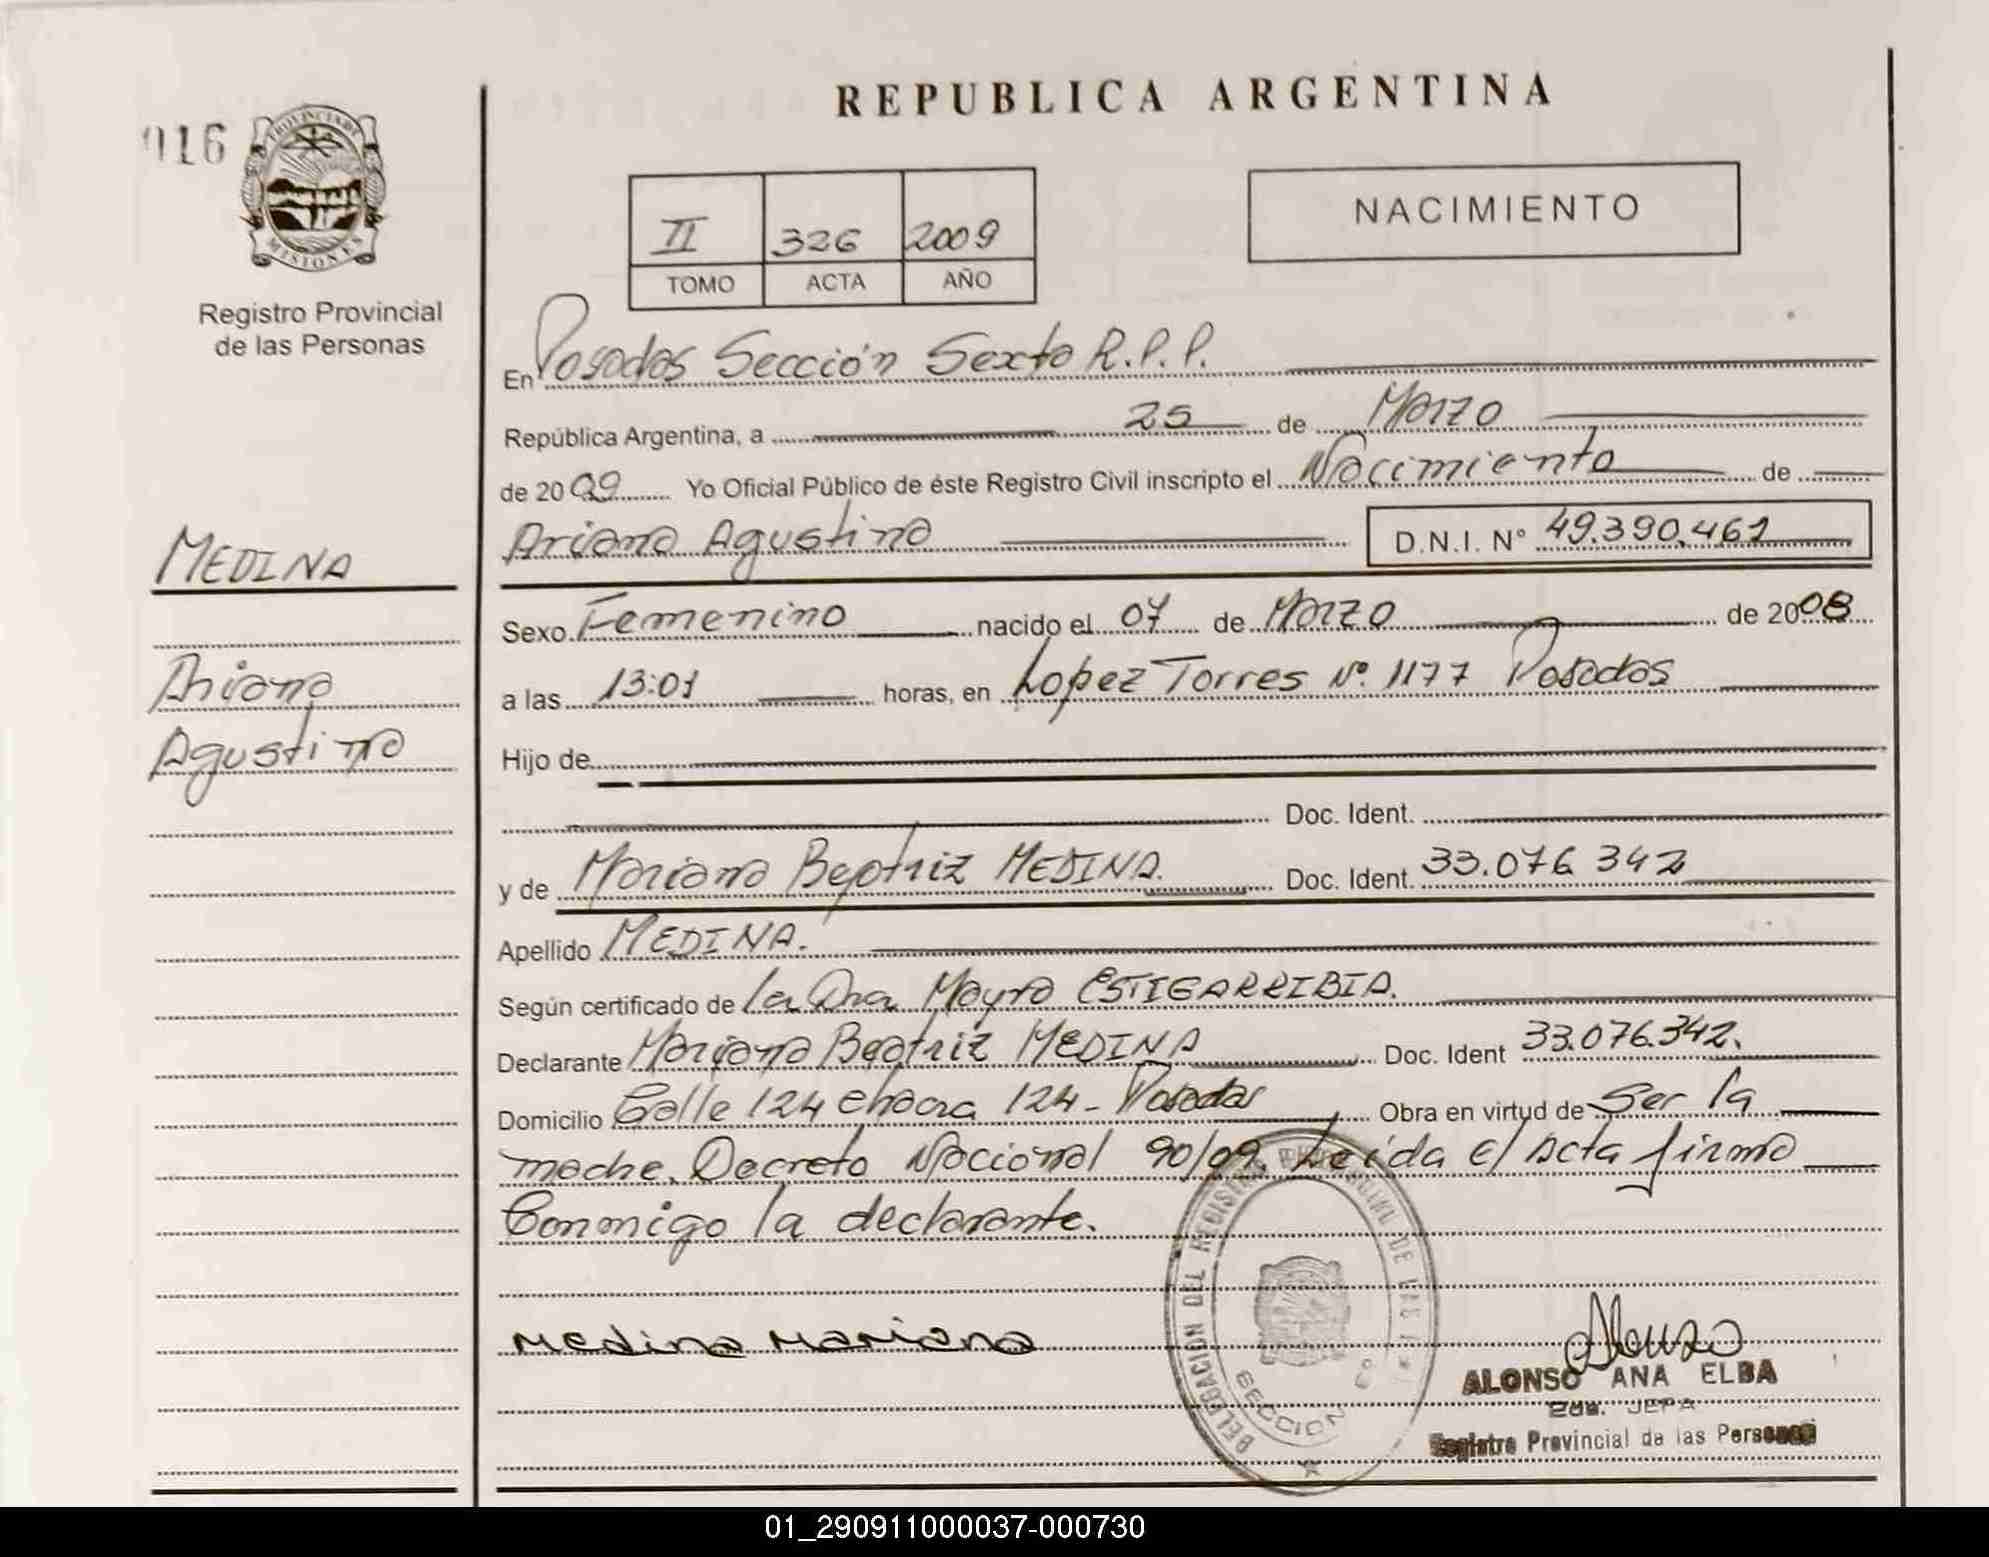 REPUBLICA ARGENTINA
016
PROVINCIA DE
MISIONES
Registro Provincial
de las Personas
II 326 2009
TOMO ACTA AÑO
NACIMIENTO
En Posadas Sección Sexta R.P.P.
República Argentina, a 25 de Marzo
de 2009 Yo Oficial Público de éste Registro Civil inscripto el Nacimiento de
Ariana Agustina D.N.I. N° 49.390.461
MEDINA
Ariana
Agustina
Sexo Femenino nacido el 07 de Marzo de 2008
a las 13:01 horas, en Lopez Torres Nº 1177 Posadas
Hijo de
Doc. Ident.
y de Mariana Beatriz MEDINA. Doc. Ident. 33.076.342
Apellido MEDINA.
Según certificado de la Dra Mayra ESTIGARRIBIA.
Declarante Mariana Beatriz MEDINA Doc. Ident 33.076.342.
Domicilio Calle 124 chacra 124 - Posadas Obra en virtud de Ser la
madre. Decreto Nacional 90/09. Leída el Acta firma
Conmigo la declarante.
DELEGACION DEL REGISTRO PROVINCIAL DE LAS
SECCION
Medina Mariana
Alonso
ALONSO ANA ELBA
2da. JEFA
Registro Provincial de las Personas
01_290911000037-000730